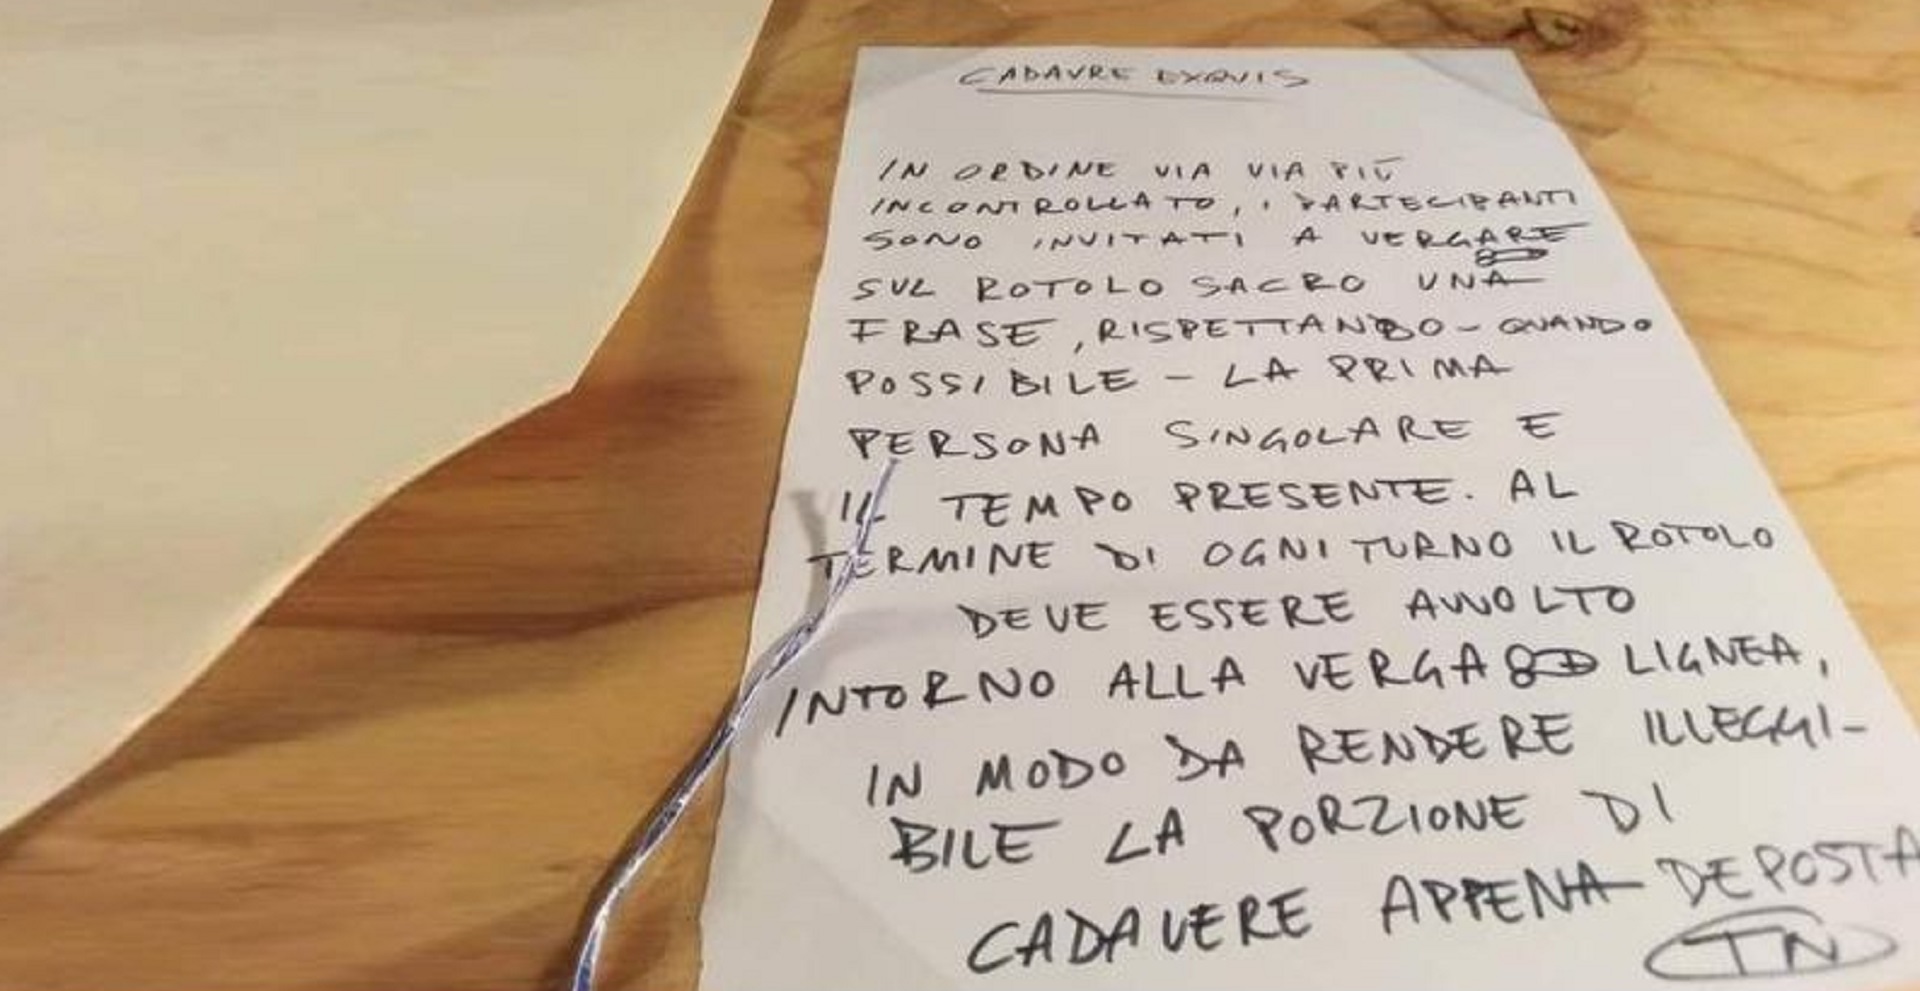 CADAVRE EXQUIS
IN ORDINE VIA VIA PIÙ
INCONTROLLATO, I PARTECIPANTI
SONO INVITATI A VERGARE
SUL ROTOLO SACRO UNA
FRASE, RISPETTANDO - QUANDO
POSSIBILE - LA PRIMA
PERSONA SINGOLARE E
IL TEMPO PRESENTE. AL
TERMINE DI OGNI TURNO IL ROTOLO
DEVE ESSERE AVVOLTO
INTORNO ALLA VERGA LIGNEA,
IN MODO DA RENDERE ILLEGGI-
BILE LA PORZIONE DI
CADAVERE APPENA DEPOSTA
TN